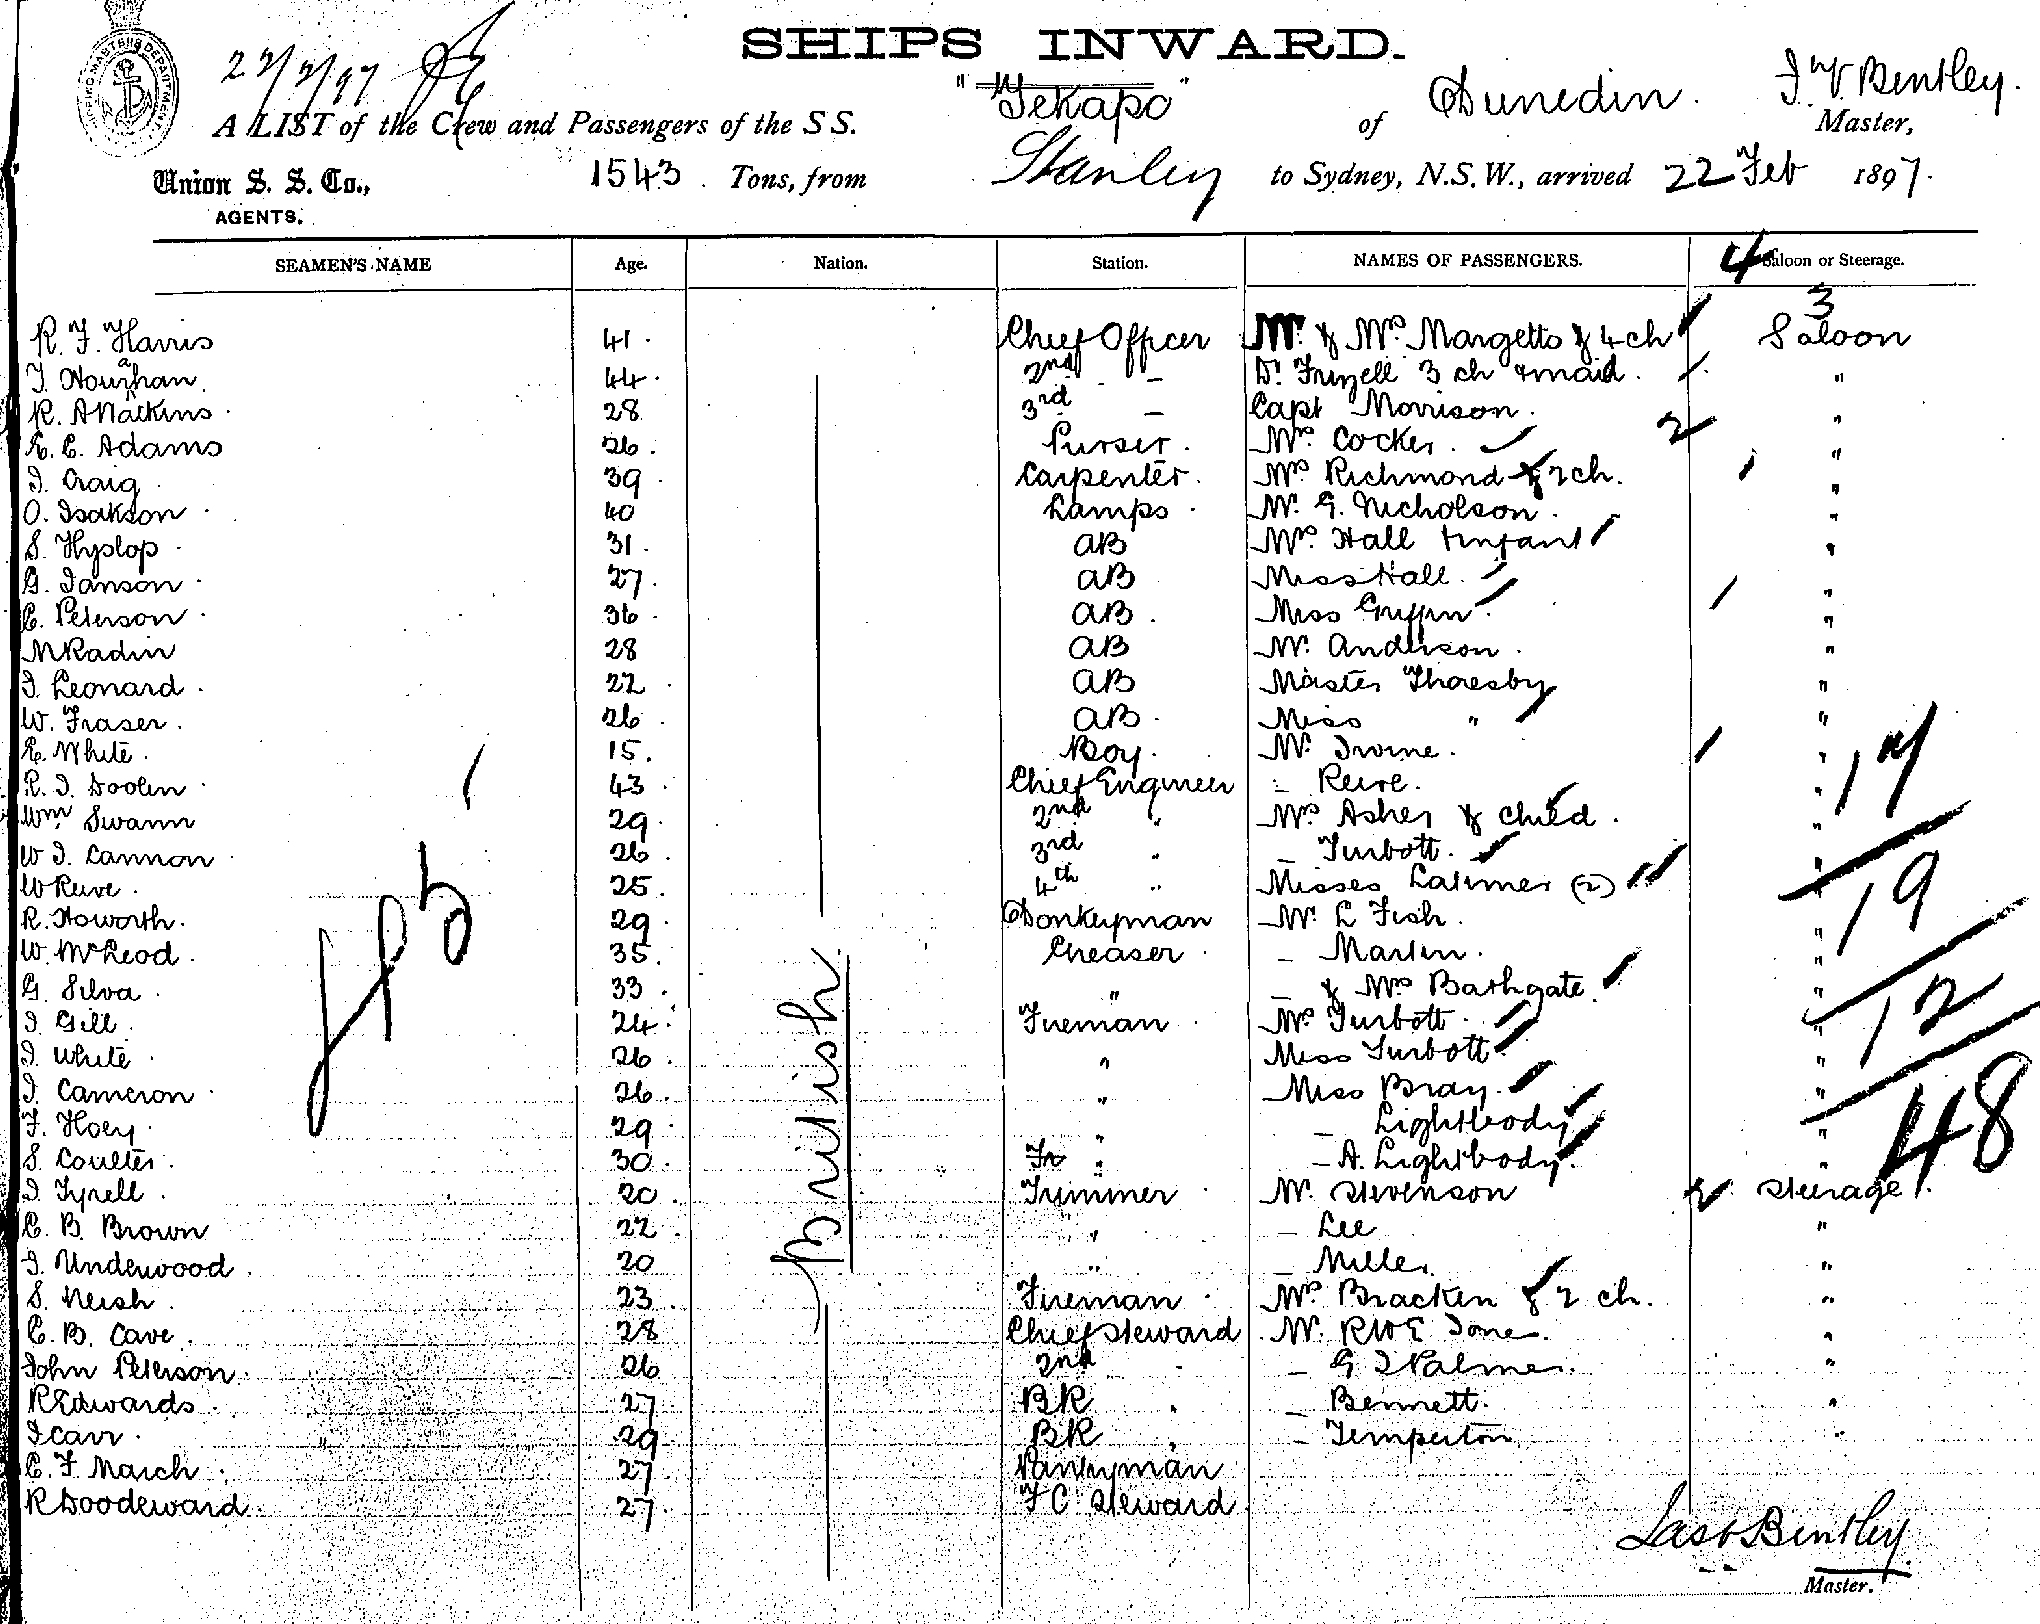 SHIPS INWARD.
22/2/97
A LIST of the Crew and Passengers of the SS. "Tekapo" of Dunedin. J. V. Bentley. Master,
Union S. S. Co., AGENTS. 1543 Tons, from Stanley to Sydney, N.S.W., arrived 22 Feb 1897.
SEAMEN'S NAME Age. Nation. Station. NAMES OF PASSENGERS. Saloon or Steerage.
4
3
R. F. Harris 41 Chief Officer Mr & Mrs Margetts & 4 ch Saloon
44 2nd – Dr Frizell 3 ch & maid "
R. A Watkins 28 3rd – Capt Morrison "
E. C. Adams 26 Purser Mr Cocker 2 "
J. Craig 39 Carpenter Mrs Richmond & 2 ch. "
O. Isakson 40 Lamps Mr. G. Nicholson "
S. Hyslop 31 AB Mrs Hall & infant "
G. Janson 27 AB Miss Hall "
C. Peterson 36 AB Miss Griffin "
M Radin 28 AB Mr. Anderson "
J. Leonard 22 AB Master Thoresby "
W. Fraser 26 AB Miss " "
E. White 15 Boy Mr. Irvine
R. J. Doolin 43 Chief Engineer – Reive "
Wm Swann 29 2nd " Mrs Asher & child "
W J. Cannon 26 3rd " – Turbott "
W Reive 25 4th " Misses Latimer (2) "
R. Howorth 29 Donkeyman Mr L Fish "
W. McLeod 35 Greaser – Martin "
G. Silva 33 " – & Mrs Bathgate "
J. Gill 24 Fireman Mrs Turbott "
J. White 26 " Miss Turbott "
J. Cameron 26 " Miss Bray "
F. Hoey 29 " – Lightbody "
S. Coulter 30 " – A. Lightbody "
J. Tyrell 20 Trimmer Mr. Stevenson 2 Steerage
C. B. Brown 22 " – Lee "
J. Underwood 20 " – Miller "
S. Neish 23 Fireman Mrs Bracken & 2 ch. "
C. B. Cave 28 Chief Steward Mr. R W E Jones "
John Peterson 26 2nd – G J Palmer "
R Edwards 27 BK " – Bennett "
J Carr 29 BK " – Temperton "
C. F March 27 Pantryman
R Doodeward 27 F C Steward
British
19
12
48
Jas V Bentley
Master.